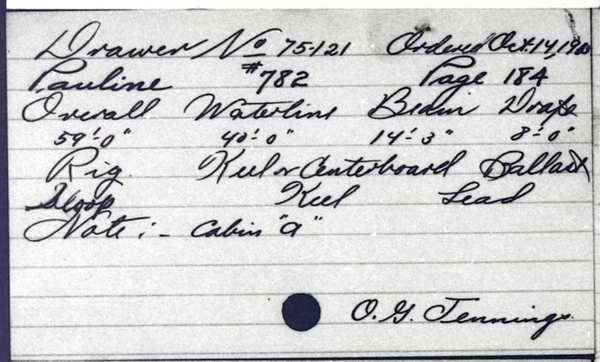 Drawer No 75-121 Ordered Oct. 14, 19
Pauline #782 Page 184
Overall Waterline Beam Draft
59'-0" 40'-0" 14'-3" 8'-0"
Rig Keel or Centerboard Ballast
Sloop Keel Lead
Note:- Cabin "a"
O. G. Jennings.